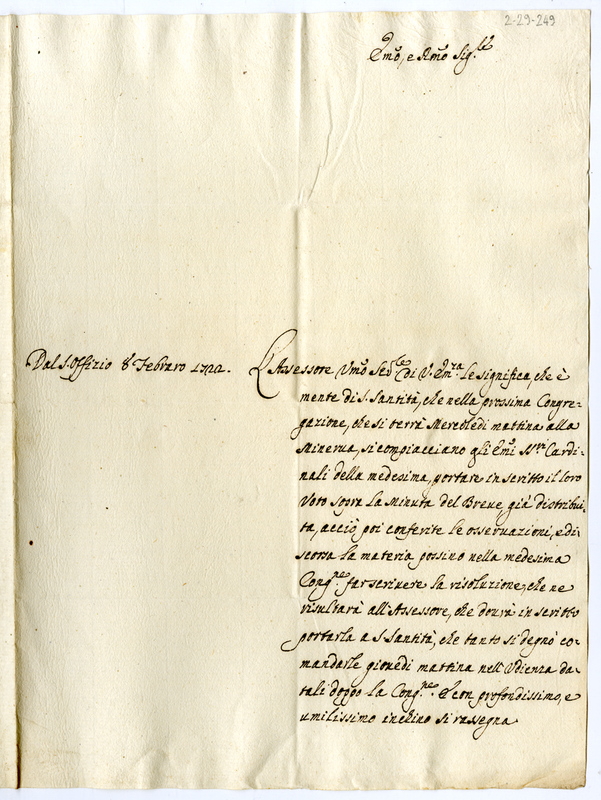 2-29-249
Emo, e Rmo Sig.re
Dal S. Offizio 8 Febraro 1722.
L'Assessore Umo Ser.le di V. Em.za Le significa, che è
mente di S. Santità, che nella prossima Congre-
gazione, che si terrà Mercoledì mattina alla
Minerva, si compiacciano gli Emi SS.ri Cardi-
nali della medesima, portare in scritto il loro
Voto sopra La Minuta del Breve, già distribui-
ta, acciò poi conferite le osservazioni, e di-
scorsa la materia possino nella medesima
Cong.ne far scrivere la risoluzione, che ne
risultarà all'Assessore, che dovrà in scritto
portarla a S. Santità, che tanto si degnò co-
mandarle giovedì mattina nell'Udienza da-
tali doppo la Cong.ne. E con profondissimo, e
umilissimo inchino si rassegna